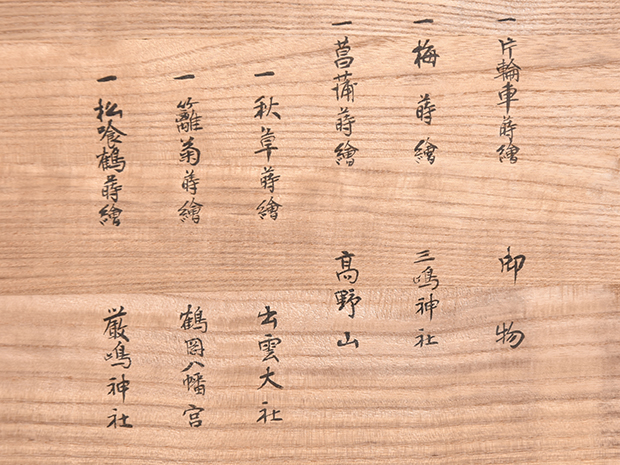 一片輪車蒔繪 御物
一梅蒔繪 三嶋神社
一菖蒲蒔繪 高野山
一秋草蒔繪 出雲大社
一籬菊蒔繪 鶴岡八幡宮
一松喰鶴蒔繪 厳嶋神社